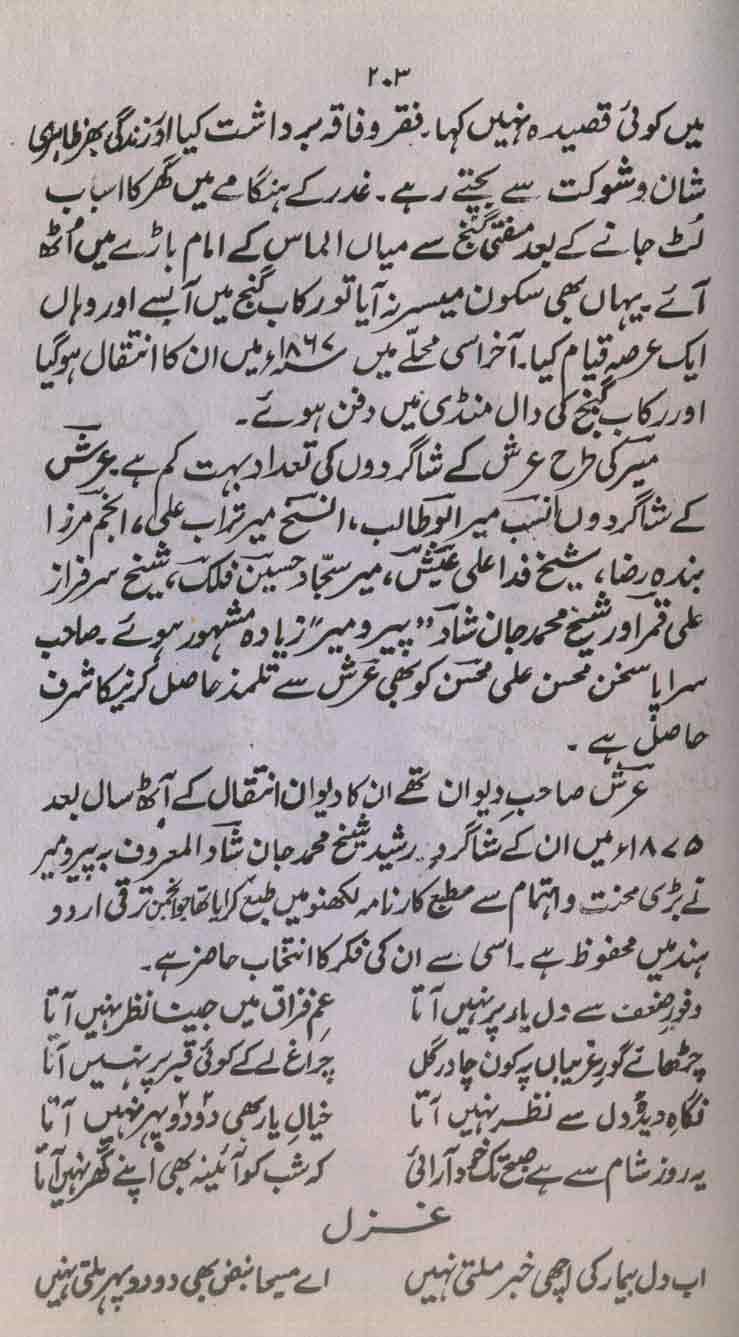 ۲۰۳
میں کوئی قصیدہ نہیں کہا۔ فقر و فاقہ برداشت کیا اور زندگی بھر ظاہری
شان و شوکت سے بچتے رہے۔ غدر کے ہنگامے میں گھر کا اسباب
لُٹ جانے کے بعد مفتی گنج سے میاں الماس کے امام باڑے میں اُٹھ
آئے۔ یہاں بھی سکون میسر نہ آیا تو رکاب گنج میں آ بسے اور وہاں
ایک عرصہ قیام کیا۔ آخر اسی محلّے میں ۱۸۶۷ء میں ان کا انتقال ہو گیا
اور رکاب گنج کی دال منڈی میں دفن ہوئے۔
میر کی طرح عرش کے شاگردوں کی تعداد بہت کم ہے۔ عرش
کے شاگردوں انسب میر ابو طالب، انسخ میر تراب علی، انجم مرزا
بندہ رضا، شیخ فدا علی عیش، میر سجاد حسین فلک، شیخ سرفراز
علی قمر اور شیخ محمد جان شاد "پیرو میر" زیادہ مشہور ہوئے۔ صاحب
سراپا سخن محسن علی محسن کو بھی عرش سے تلمذ حاصل کرنیکا شرف
حاصل ہے۔
عرش صاحبِ دیوان تھے ان کا دیوان انتقال کے آٹھ سال بعد
۱۸۷۵ء میں ان کے شاگرد رشید شیخ محمد جان شاد المعروف بہ پیرو میر
نے بڑی محنت و اہتمام سے مطبع کارنامہ لکھنو میں طبع کرایا تھا جو انجمن ترقی اردو
ہند میں محفوظ ہے۔ اسی سے ان کی فکر کا انتخاب حاضر ہے۔
وفورِ ضعف سے دل یار پر نہیں آتا غمِ فراق میں جینا نظر نہیں آتا
چڑھائے گورِ غریباں پہ کون چادرِ گل چراغ لے کے کوئی قبر پر نہیں آتا
نگاہِ دیدۂ دل سے نظر نہیں آتا خیالِ یار بھی دو دو پہر نہیں آتا
یہ روز شام سے ہے صبح تک خود آرائی کہ شب کو آئینہ بھی اپنے گھر نہیں آتا
غزل
اب دل بیمار کی اچھی خبر ملتی نہیں اے مسیحا نبض بھی دو دو پہر ملتی نہیں